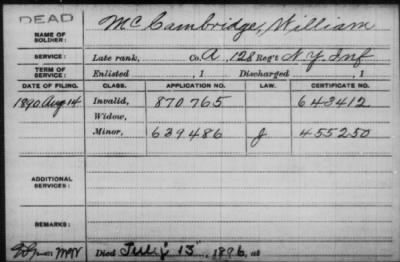 DEAD
NAME OF SOLDIER: McCambridge, William
SERVICE: Late rank, Co. A, 128 Reg't N.Y. Inf
TERM OF SERVICE: Enlisted , 1 Discharged , 1
DATE OF FILING. CLASS. APPLICATION NO. LAW. CERTIFICATE NO.
1890 Aug 14 Invalid, 870765 643412
Widow,
Minor, 639486 J 455250
ADDITIONAL SERVICES:
REMARKS:
Died July 13, 1896, at